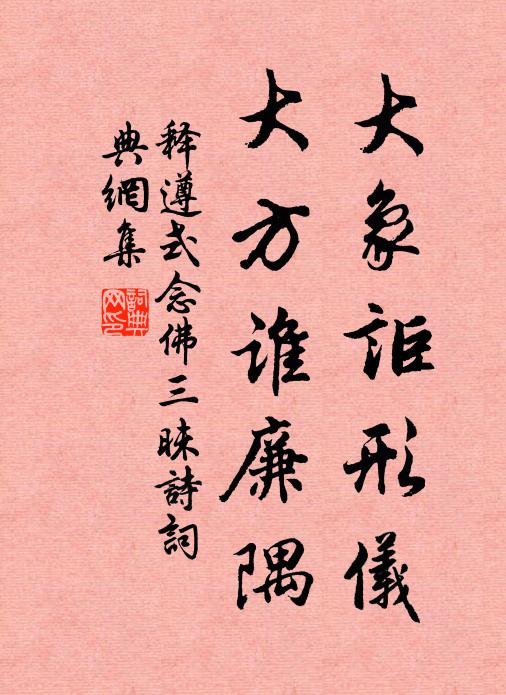 大象詎形儀
大方誰廉隅
释遵式念佛三昧詩詞
典網集
詞典網印